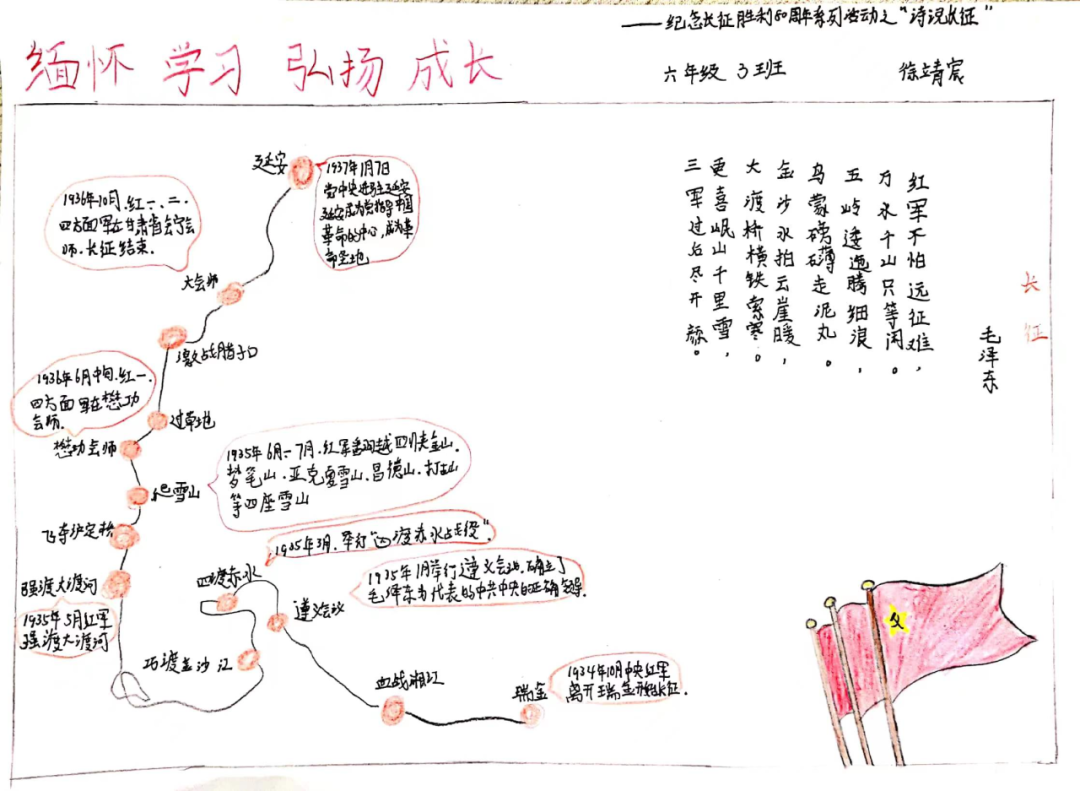 ——纪念长征胜利80周年系列活动之“诗说长征”
缅怀 学习 弘扬 成长
六年级 3班 徐靖宸
长征
毛泽东
红军不怕远征难，
万水千山只等闲。
五岭逶迤腾细浪，
乌蒙磅礴走泥丸。
金沙水拍云崖暖，
大渡桥横铁索寒。
更喜岷山千里雪，
三军过后尽开颜。
延安
1937年1月7日
党中央进驻延安
延安成为党指导中国
革命的中心，成为革
命圣地
1936年10月.红一、二.
四方面军在甘肃省会宁会
师.长征结束.
大会师
激战腊子口
1936年6月中旬.红一.
四方面军在懋功
会师.
过草地
懋功会师
1935年6月-7月.红军翻越四川夹金山.
梦笔山.亚克夏雪山.昌德山.打鼓山
等四座雪山
爬雪山
飞夺泸定桥
1935年3月.举行“四渡赤水战役”.
强渡大渡河
四渡赤水
1935年1月举行遵义会议.确立了
毛泽东为代表的中共中央的正确领导.
1935年5月红军
强渡大渡河
遵义会议
巧渡金沙江
血战湘江
瑞金
1934年10月中央红军
离开瑞金开始长征.